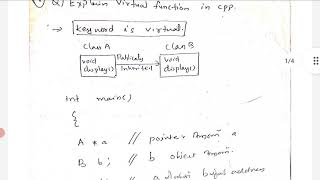 Q) Explain virtual function in cpp.
→ keyword is virtual.
Class A Class B
void display() Publicaly Inherited void display()
1/4
int main()
{
A *a // pointer a
B b; // b object
// a address